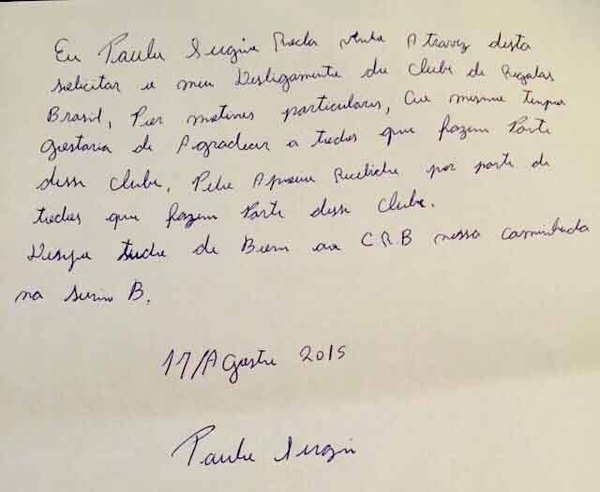 Eu Paulo Sergio Rocha venho Atravez desta
solicitar o meu Desligamento do Clube de Regatas
Brasil, Por motivos particulares, Ao mesmo tempo
gostaria de Agradecer a todos que fazem Parte
desse clube, Pelo Apoio Recebido por parte de
todos que fazem Parte desse Clube.
Desejo tudo de Bom ao C.R.B nessa caminhada
na serie B.
17/Agosto 2015
Paulo Sergio